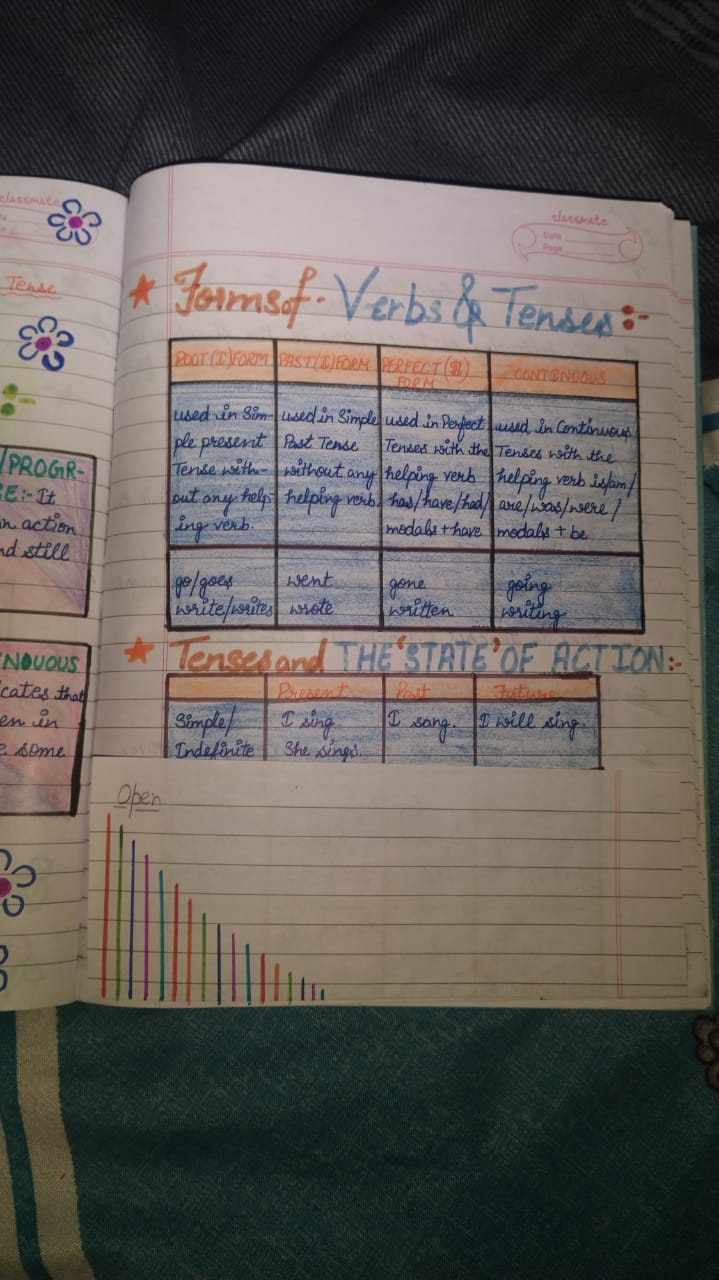 classmate
Tense
/PROGR-
E:- It
n action
nd still
NOUOUS
cates that
en in
e some
classmate
Date
Page
Forms of Verbs & Tenses:-
ROOT (I) FORM
used in Sim-
ple present
Tense with-
out any help-
ing verb.
go/goes
write/writes
PAST (II) FORM
used in Simple
Past Tense
without any
helping verb.
went
wrote
PERFECT (III)
FORM
used in Perfect
Tenses with the
helping verb
has/have/had/
modals + have
gone
written
CONTINUOUS
used in Continuous
Tenses with the
helping verb is/am/
are/was/were/
modals + be
going
writing
Tenses and THE 'STATE' OF ACTION:-
Present Past Future
Simple/
Indefinite
I sing
She sings.
I sang.
I will sing.
Open